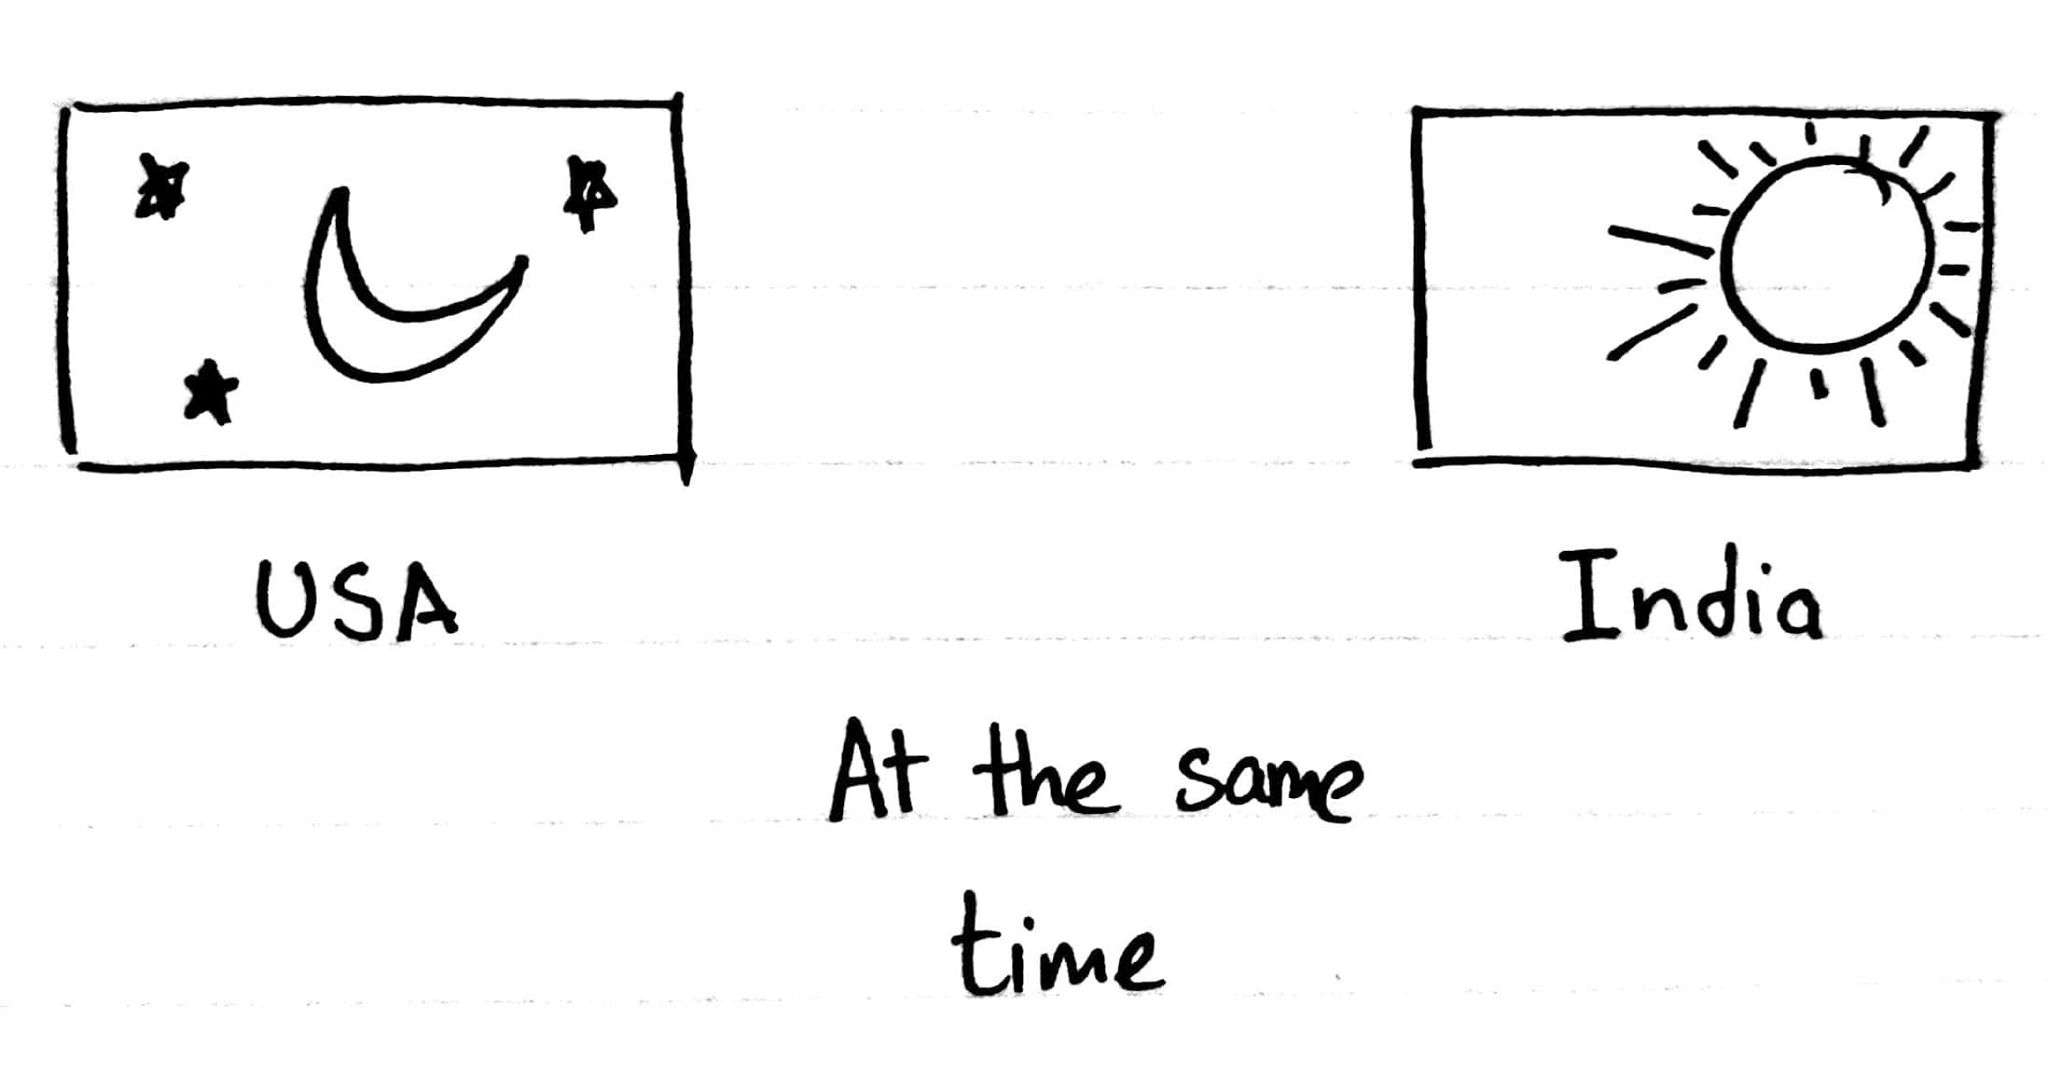 USA
India
At the same
time